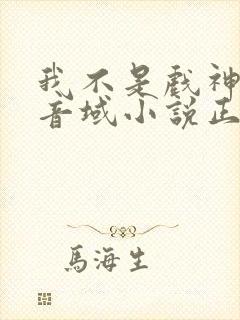 我不是戲神
音域小說正
馬海生